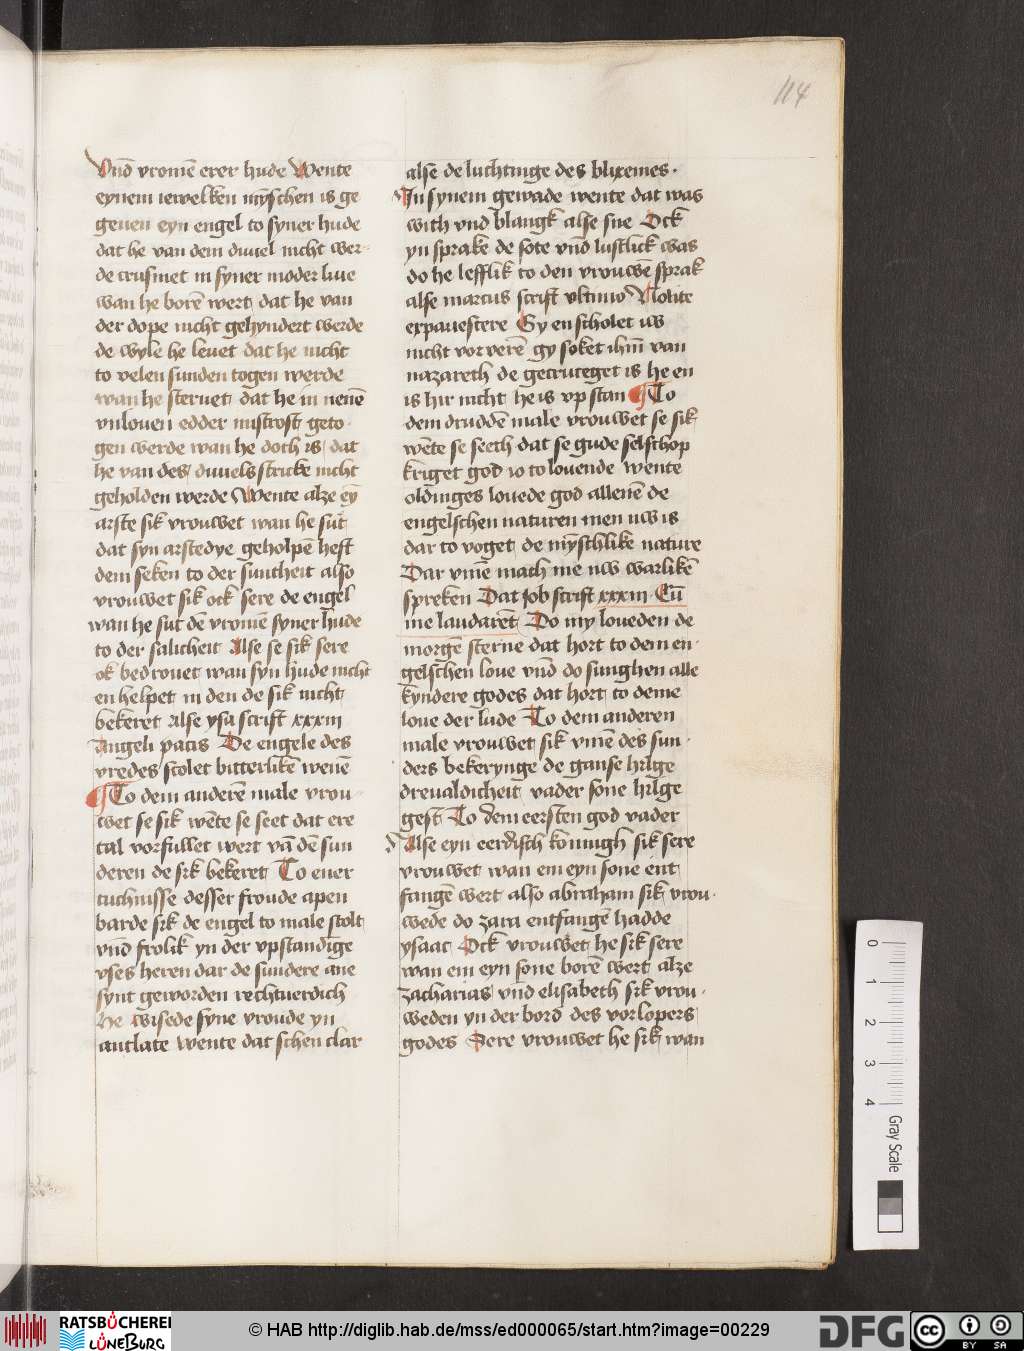 114
Vnd vromē erer hude Wente
eynem iewelken mȳschen is ge
geuen eyn engel to syner hude
dat he van dem duuel nicht wer-
de crusmet in syner moder liue
wan he borē wert dat he van
der dope nicht gehyndert werde
de wyle he leuet dat he nicht
to velen sunden togen werde
wan he steruet dat he in nenē
vnlouen edder mistrost geto-
gen werde wan he doch is dat
he van des duuels stricke nicht
geholden werde Wente alze eȳ
arste sik vrouwet wan he sut
dat syn arstedye geholpē heft
dem seken to der suntheit also
vrouwet sik ock sere de engel
wan he sut dē vromē syner hude
to der salicheit Alse se sik sere
ok bedrouet wan syn hude nicht
en helpet in den de sik nicht
bekeret Alse ysa scrift xxxiii
Angeli pacis De engele des
vredes scolet bitterlikē wenē
¶ To dem anderē male vrou-
wet se sik wēte se seet dat ere
tal vorfullet wert vā dē sun
deren de sik bekeret To ener
tuchnisse desser froude apen
barde sik de engel to male stolt
vnd frolik yn der vpstandīge
vses heren dar de sundere ane
synt geworden rechtuerdich
He wisede syne vroude yn
antlate wente dat schen clar
alse de luchtinge des blixemes.
In synem gewade wente dat was
with vnd blangk alse sne Ock
yn sprake de sote vnd lustlick was
do he lefflik to den vrouwē sprak
alse marcus scrift vltimo Nolite
expauescere Gy en scholet uw
nicht vorverē gy soket ihm̄ van
nazareth de gecruceget is he en
is hir nicht he is vp stan ¶ To
dem druddē male vrouwet se sik
wēte se seeth dat se gude selschop
kriget god io to louende wente
oldinges louede god allenē de
engelschen naturen men nw is
dar to voget de mȳschlike nature
Dar vmē mach me nw warlikē
spreken Dat Job scrift xxxiii Cū
me laudarēt Do my loueden de
morgē sterne dat hort to dem en-
gelschen loue vnd do sunghen alle
kyndere godes dat hort to deme
loue der lude To dem anderen
male vrouwet sik vmē des sun-
ders bekerynge de ganse hilge
dreualdicheit vader sone hilge
gest To dem eersten god vader
Alse eyn eerdisch konnigh sik sere
vrouwet wan em eyn sone ent
fangē wert also abraham sik vrou-
wede do zara entfangē hadde
ysaac Ock vrouwet he sik sere
wan em eyn sone borē wert alze
zacharias vnd elisabeth sik vrou-
weden yn der bord des vorlopers
godes Sere vrouwet he sik wan
0
1
2
3
4
Gray Scale
RATSBÜCHEREI
LÜNEBURG
© HAB http://diglib.hab.de/mss/ed000065/start.htm?image=00229
DFG
cc
BY SA